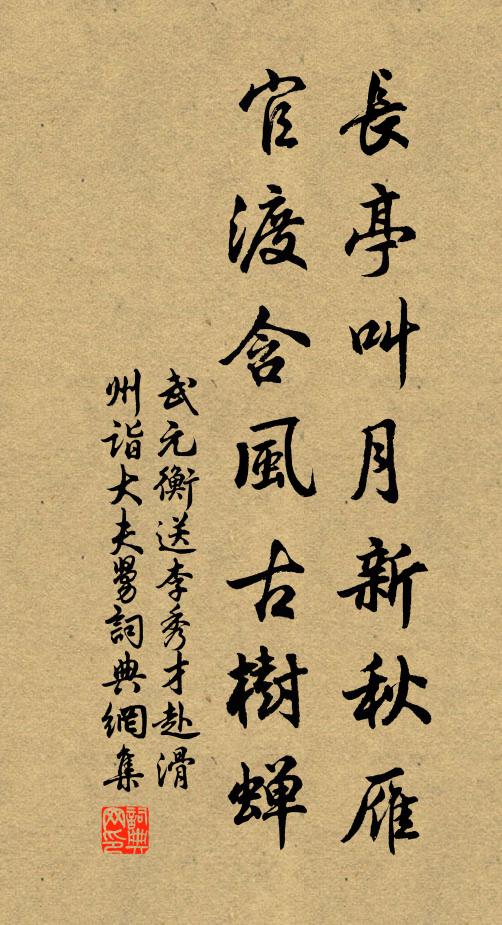 長亭叫月新秋雁
官渡含風古樹蟬
武元衡送李秀才赴滑
州詣大夫舅詞典網集
詞典
网印